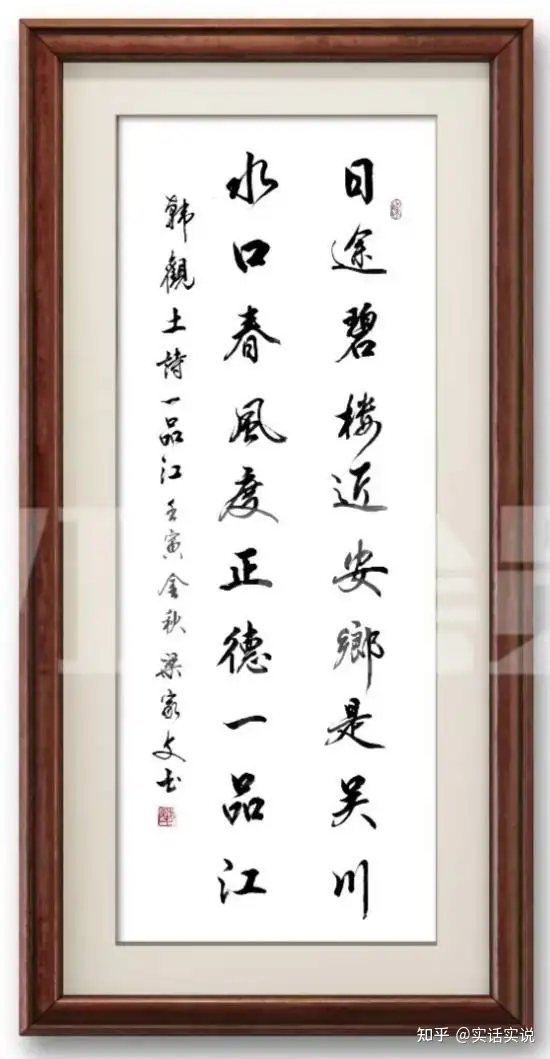 日途碧楼近安鄉是吴川
水口春風度正德一品江
韩觀土詩一品江壬寅金秋梁家文书
知乎 @实话实说